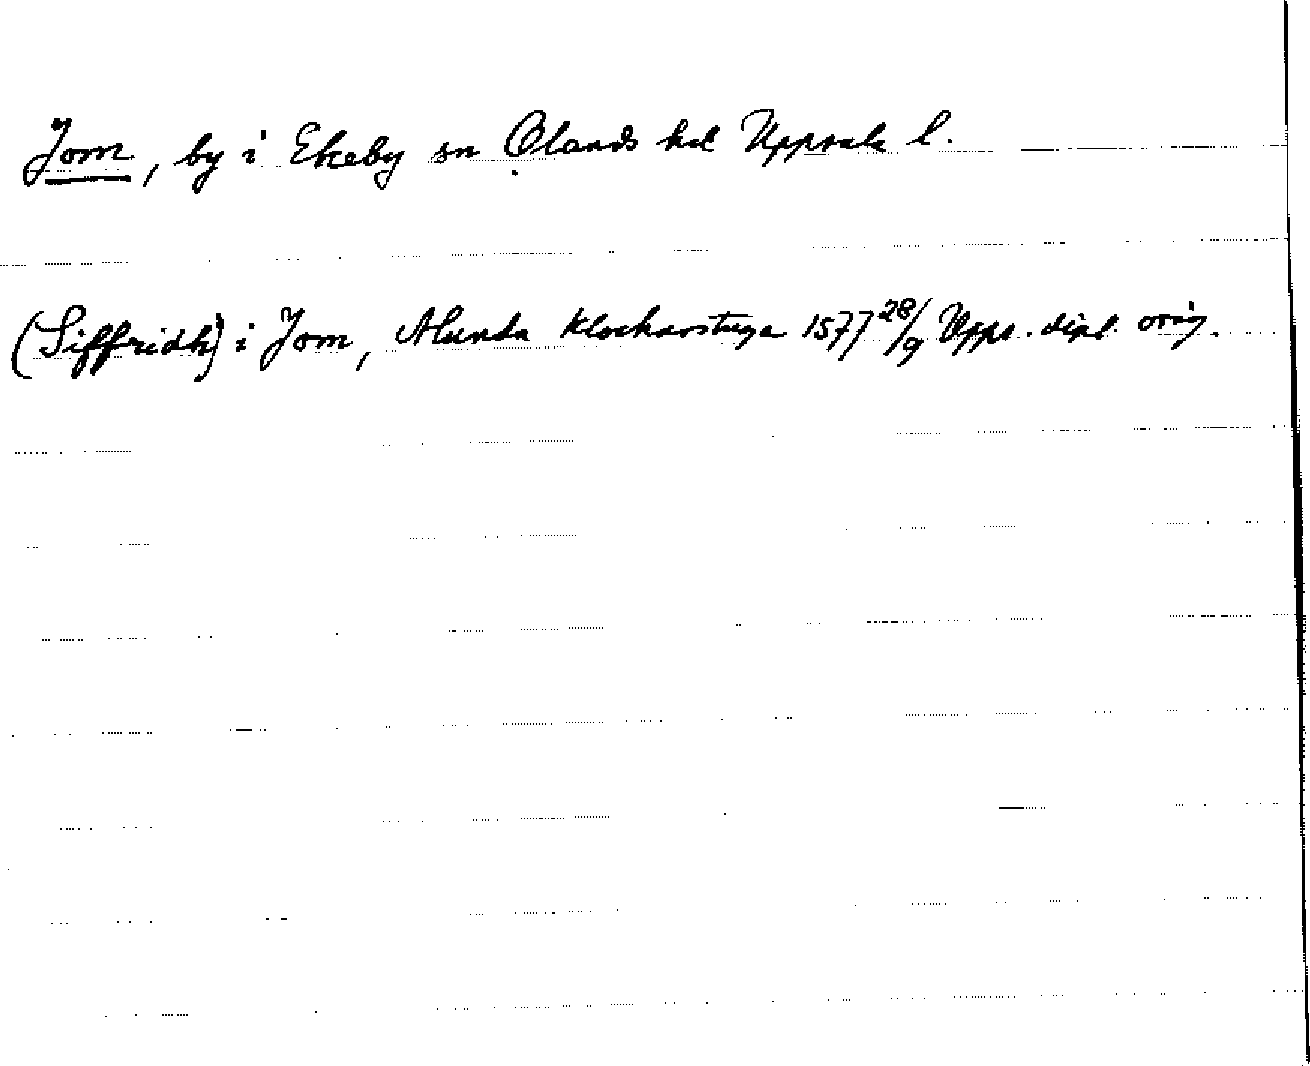 Jom, by i Ekeby sn Olands hd Uppsala l.
(Siffridh) i Jom, Alunda Klockarstuga 1577 28/9 Upps. dipl. orig.